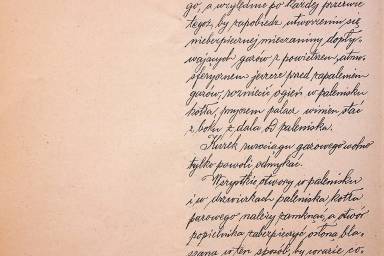 go, a względnie po każdej przerwie
tegoż, by zapobiedz utworzeniu się
niebezpiecznej mieszaniny dopły-
wających gazów z powietrzem, atmo-
sferycznem jeszcze przed zapaleniem
gazów, rozniecić ogień w palenisku
kotła, przyczem palacz winien stać
z boku z dala od paleniska.
Kurek rurociągu gazowego wolno
tylko powoli odmykać.
Wszystkie otwory w palenisku
i w drzwiczkach paleniska, kotła
parowego należy zamknąć, a otwór
popielnika zabezpieczyć osłoną bla-
szaną w ten sposób, by w razie co-